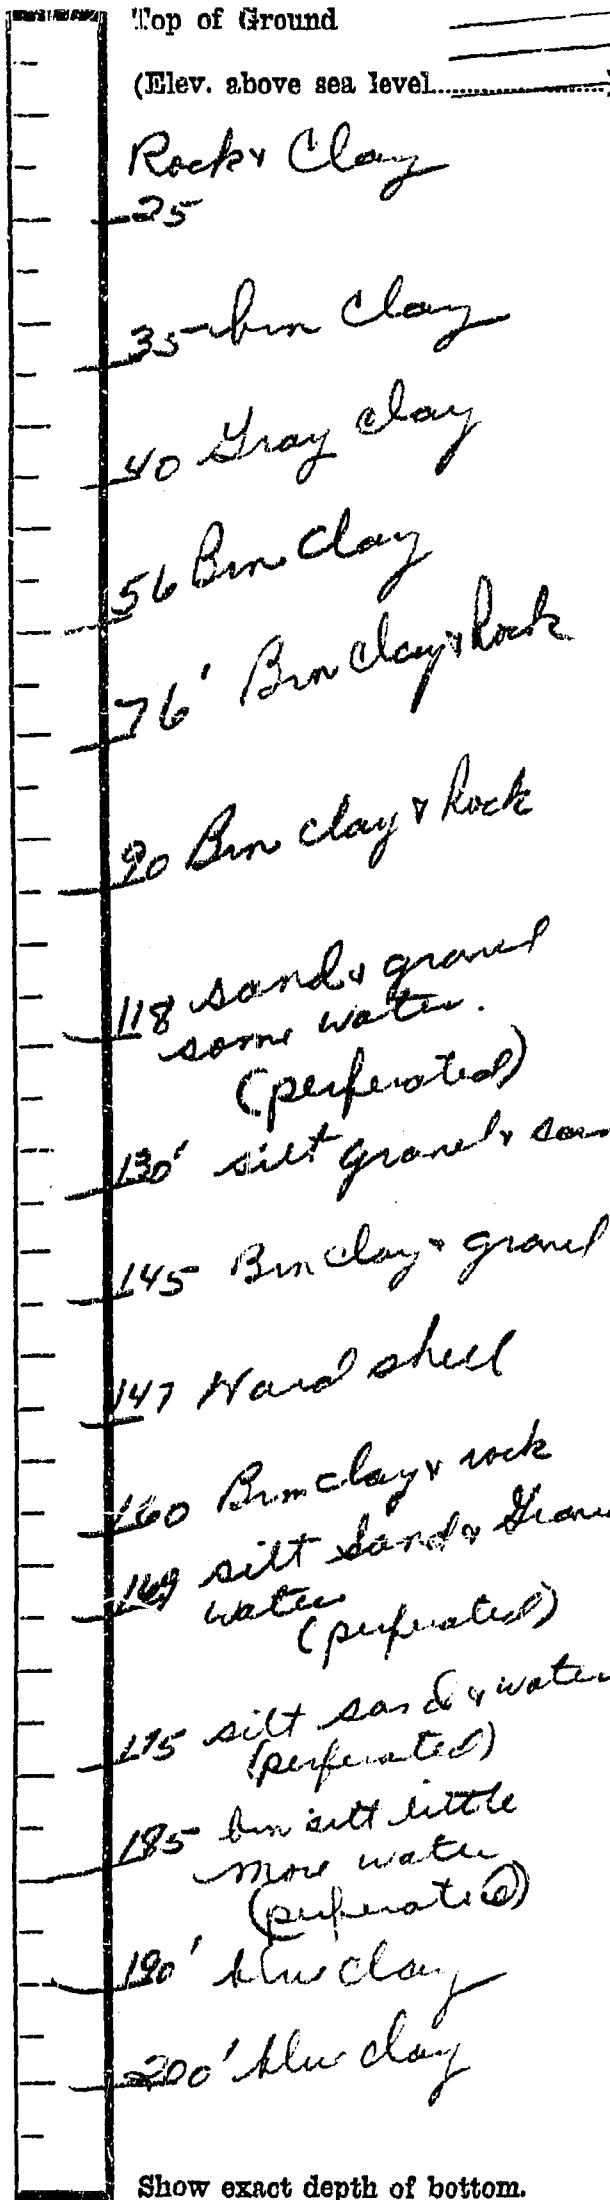 Top of Ground
(Elev. above sea level
Rock & Clay
25
35 brn Clay
40 Gray clay
56 Brn Clay
76' Brn clay & Rock
90 Brn clay & Rock
118 sand & gravel
some water.
(perferated)
130' silt gravel & san
145 Brn clay & gravel
147 Hard shell
160 Brn clay & rock
169 silt Sand & Grave
water
(perferated)
175 silt sand & water
(perferated)
185 brn silt little
more water
(perferated)
190' blue clay
200' blue clay
Show exact depth of bottom.